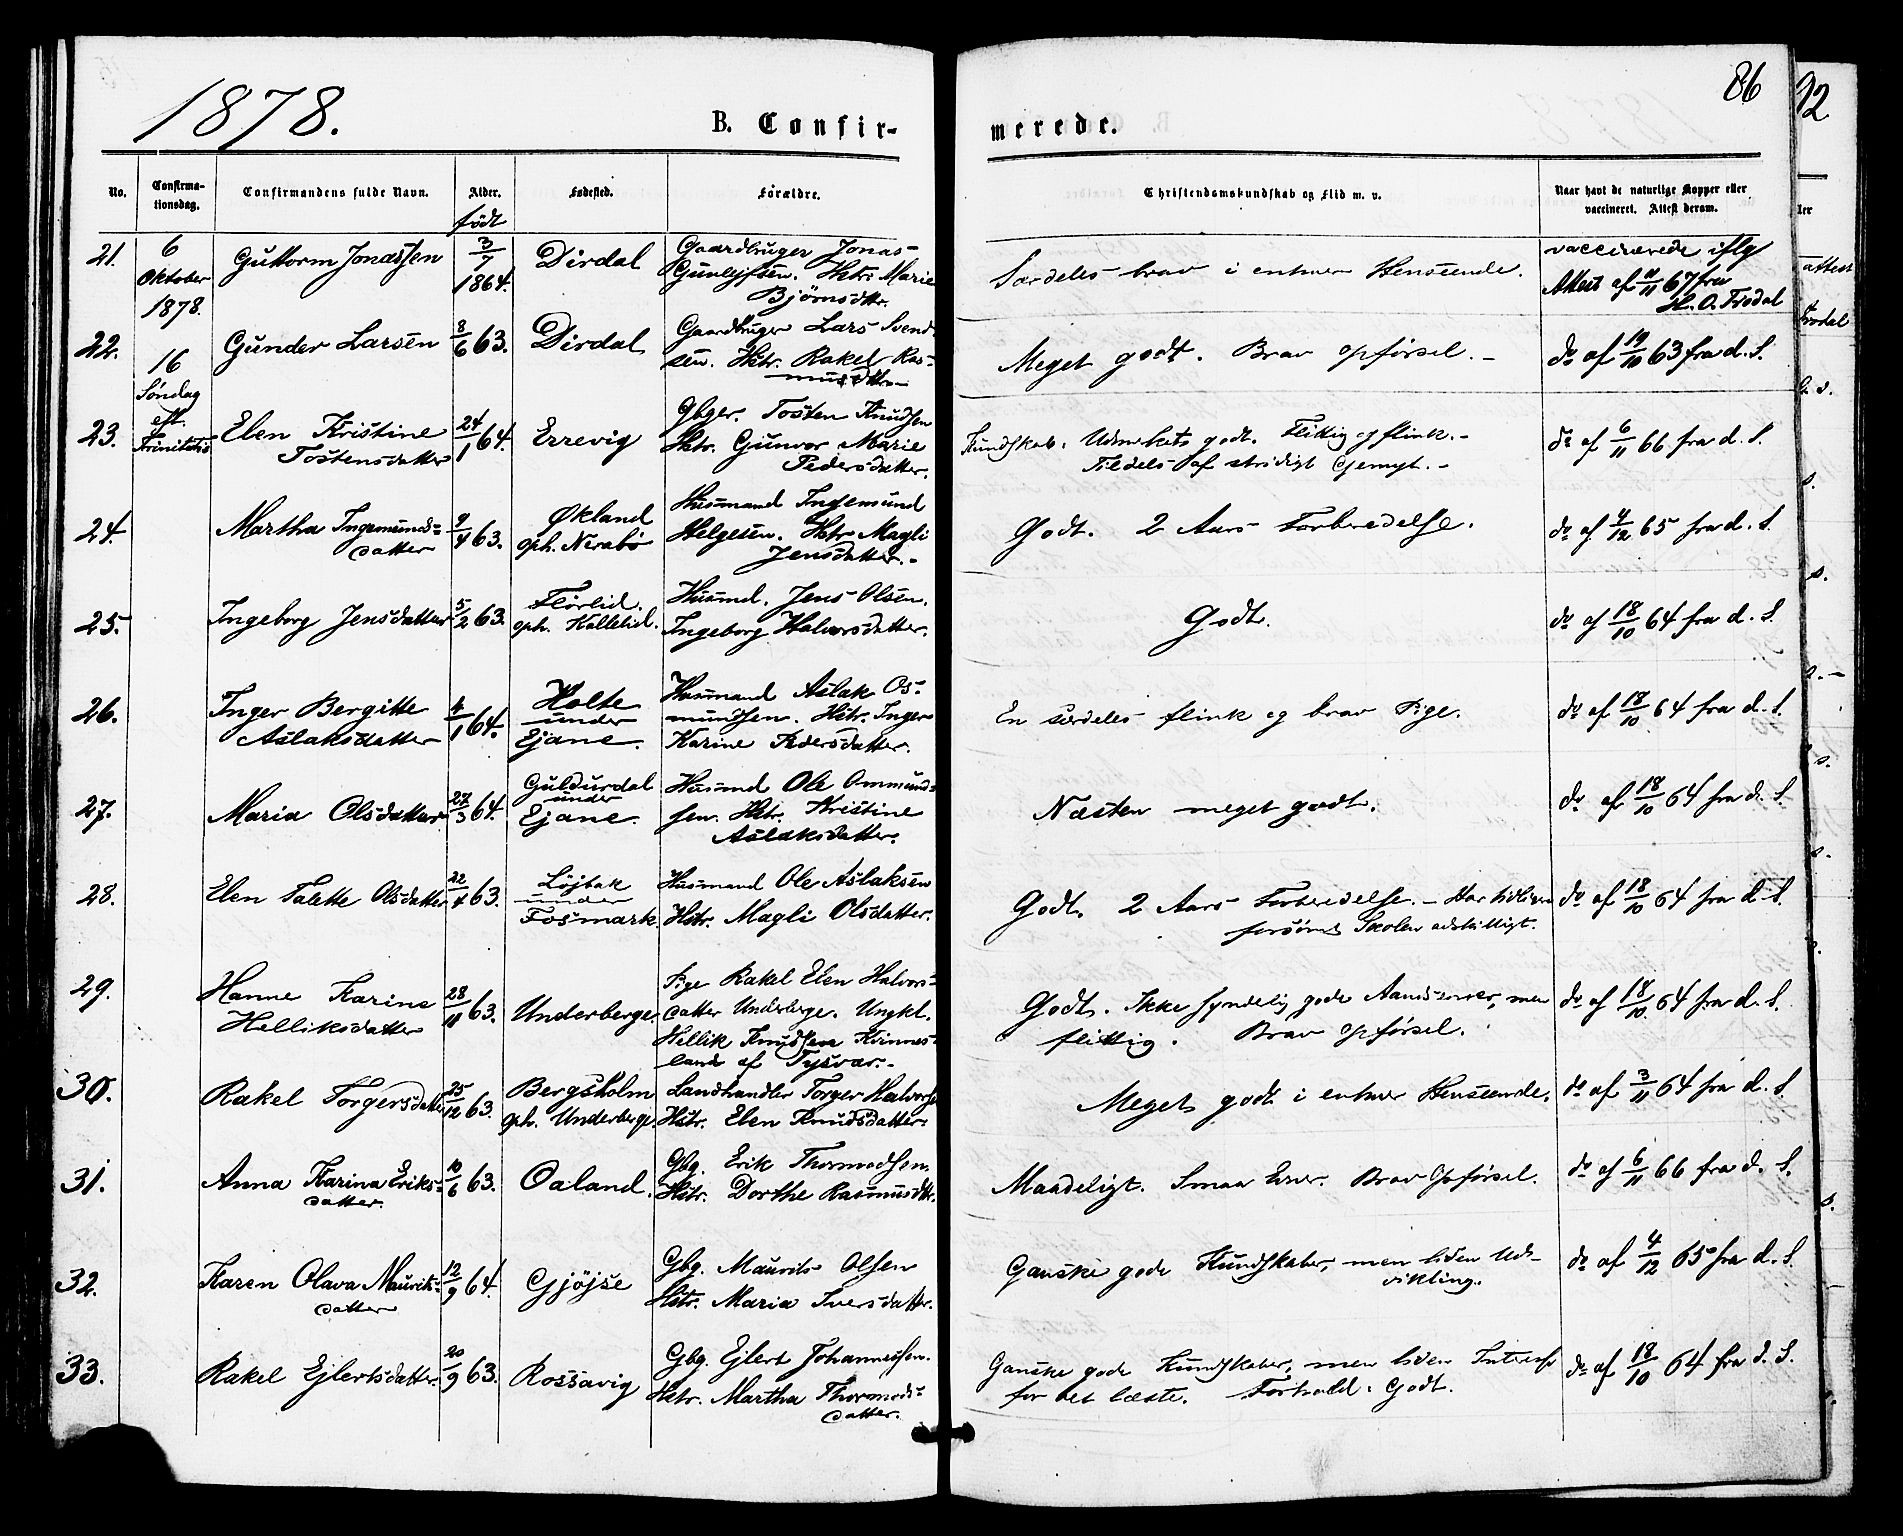 1878.
B. Confir-
merede.
86
92
No.
Confirma-
tionsdag.
Confirmandens fulde Navn.
Alder.
født
Fødested.
Forældre.
Christendomskundskab og Flid m. v.
Naar havt de naturlige Kopper eller
vaccineret. Attest derom.
21.
6
Oktober
1878.
16
Søndag
eft.
Trinitatis
Guttorm Jonassen
3/7
1864.
Dirdal
Gaardbruger Jonas
Gunlejfsen. Hstr. Marie
Bjørnsdtr.
Særdeles brav i enhver Henseende.
vaccinerede iflg
Attest af 11/11 67 fra
H. O. Frodal
22.
Gunder Larsen
8/6 63.
Dirdal
Gaardbruger Lars Svend-
sen. Hstr. Rakel Ras-
musdtr.
Meget godt. Brav opførsel. -
do af 19/10 63 fra d. S.
23.
Elen Kristine
Tostensdatter
24/1 64.
Errevig
Gbger. Tosten Knudsen
Hstr. Gunvor Marie
Pedersdatter.
Kundskab: Udmerkets godt. Flittig og flink. -
Tildels af stridigt Gemyt. -
do af 6/11 66 fra d. S.
24.
Martha Ingemunds-
datter
9/4 63.
Økland
oph. Nerabø
Husmand Ingemund
Helgesen. Hstr Magli
Jensdatter. -
Godt. 2 Aars Forberedelse.
do af 4/12 65 fra d. S.
25.
Ingeborg Jensdatter
5/2 63.
Flørlid.
oph. Kallelid.
Husmd. Jens Olsen.
Ingeborg Halvorsdatter.
Godt.
do af 18/10 64 fra d. S.
26.
Inger Bergitte
Aslaksdatter
4/1 64.
Holte
under
Ejane.
Husmand Aslak Os-
mundsen. Hstr. Inger
Karine Pedersdatter.
En særdeles flink og brav Pige.
do af 18/10 64 fra d. S.
27.
Maria Olsdatter
27/3 64.
Guldurdal
under
Ejane.
Husmd Ole Ommund-
sen. Hstr. Kristine
Aslaksdatter.
Næsten meget godt.
do af 18/10 64 fra d. S.
28.
Elen Talette Olsdatter
22/4 63.
Løjbak
under
Fosmark
Husmand Ole Aslaksen
Hstr. Magli Olsdatter.
Godt. 2 Aars Forberedelse. - Har tidligere
forsømt Skolen adskilligt.
do af 18/10 64 fra d. S.
29.
Hanne Karine
Helliksdatter
28/11 63.
Underberge.
Pige Rakel Elen Halvors-
datter Underberge. Ungkl.
Hellik Knudsen Kvinnes-
land af Tysvær. -
Godt. Ikke synderlig gode Aandsevner, men
flittig. Brav opførsel.
do af 18/10 64 fra d. S.
30.
Rakel Torgersdatter
25/12 63.
Bergsholm
oph. Underberge
Landhandler Torger Halvorsen
Hstr. Elen Knudsdatter.
Meget godt i enhver Henseende.
do af 3/11 64 fra d. S.
31.
Anna Karina Eriks-
datter.
10/6 63.
Oaland.
Gbg. Erik Thormodsen.
Hstr. Dorthe Rasmusdtr.
Maadeligt. Smaa Evner. Brav Opførsel.
do af 6/11 66 fra d. S.
32.
Karen Olava Maurits-
datter
12/9 64.
Gjøjse
Gbg. Maurits Olsen
Hstr. Maria Iversdatter.
Ganske gode Kundskaber, men liden Ud-
vikling.
do af 4/12 65 fra d. S.
33.
Rakel Ejlertsdatter.
20/9 63.
Rossavig
Gbg. Ejlert Johannessen.
Hstr. Martha Thormods-
datter.
Ganske gode Kundskaber, men liden Interesse
for det læste. Forhold: Godt.
do af 18/10 64 fra d. S.